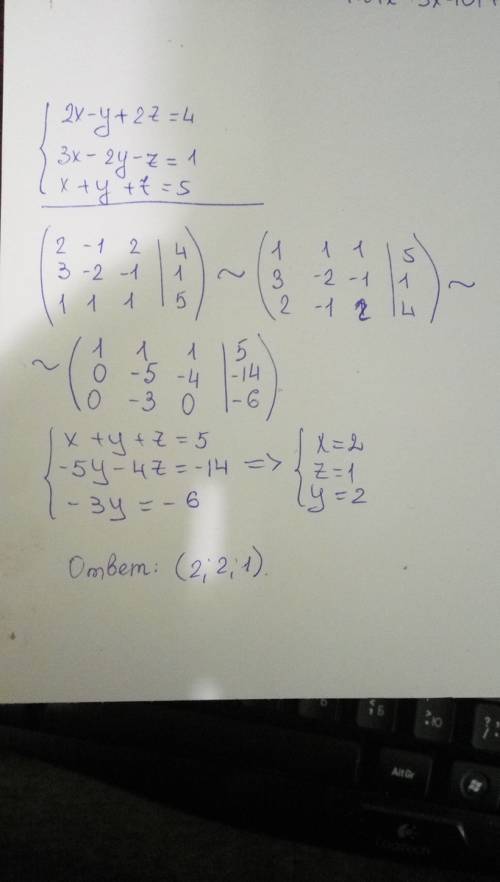 2x-y+2z=4
3x-2y-z=1
x+y+z=5
2 -1 2 | 4
3 -2 -1 | 1
1 1 1 | 5
~
1 1 1 | 5
3 -2 -1 | 1
2 -1 2 | 4
~
~
1 1 1 | 5
0 -5 -4 | -14
0 -3 0 | -6
x+y+z=5
-5y-4z=-14
-3y=-6
=>
x=2
z=1
y=2
Ответ: (2; 2; 1).
Б
Ю
Alt Gr
Logitech